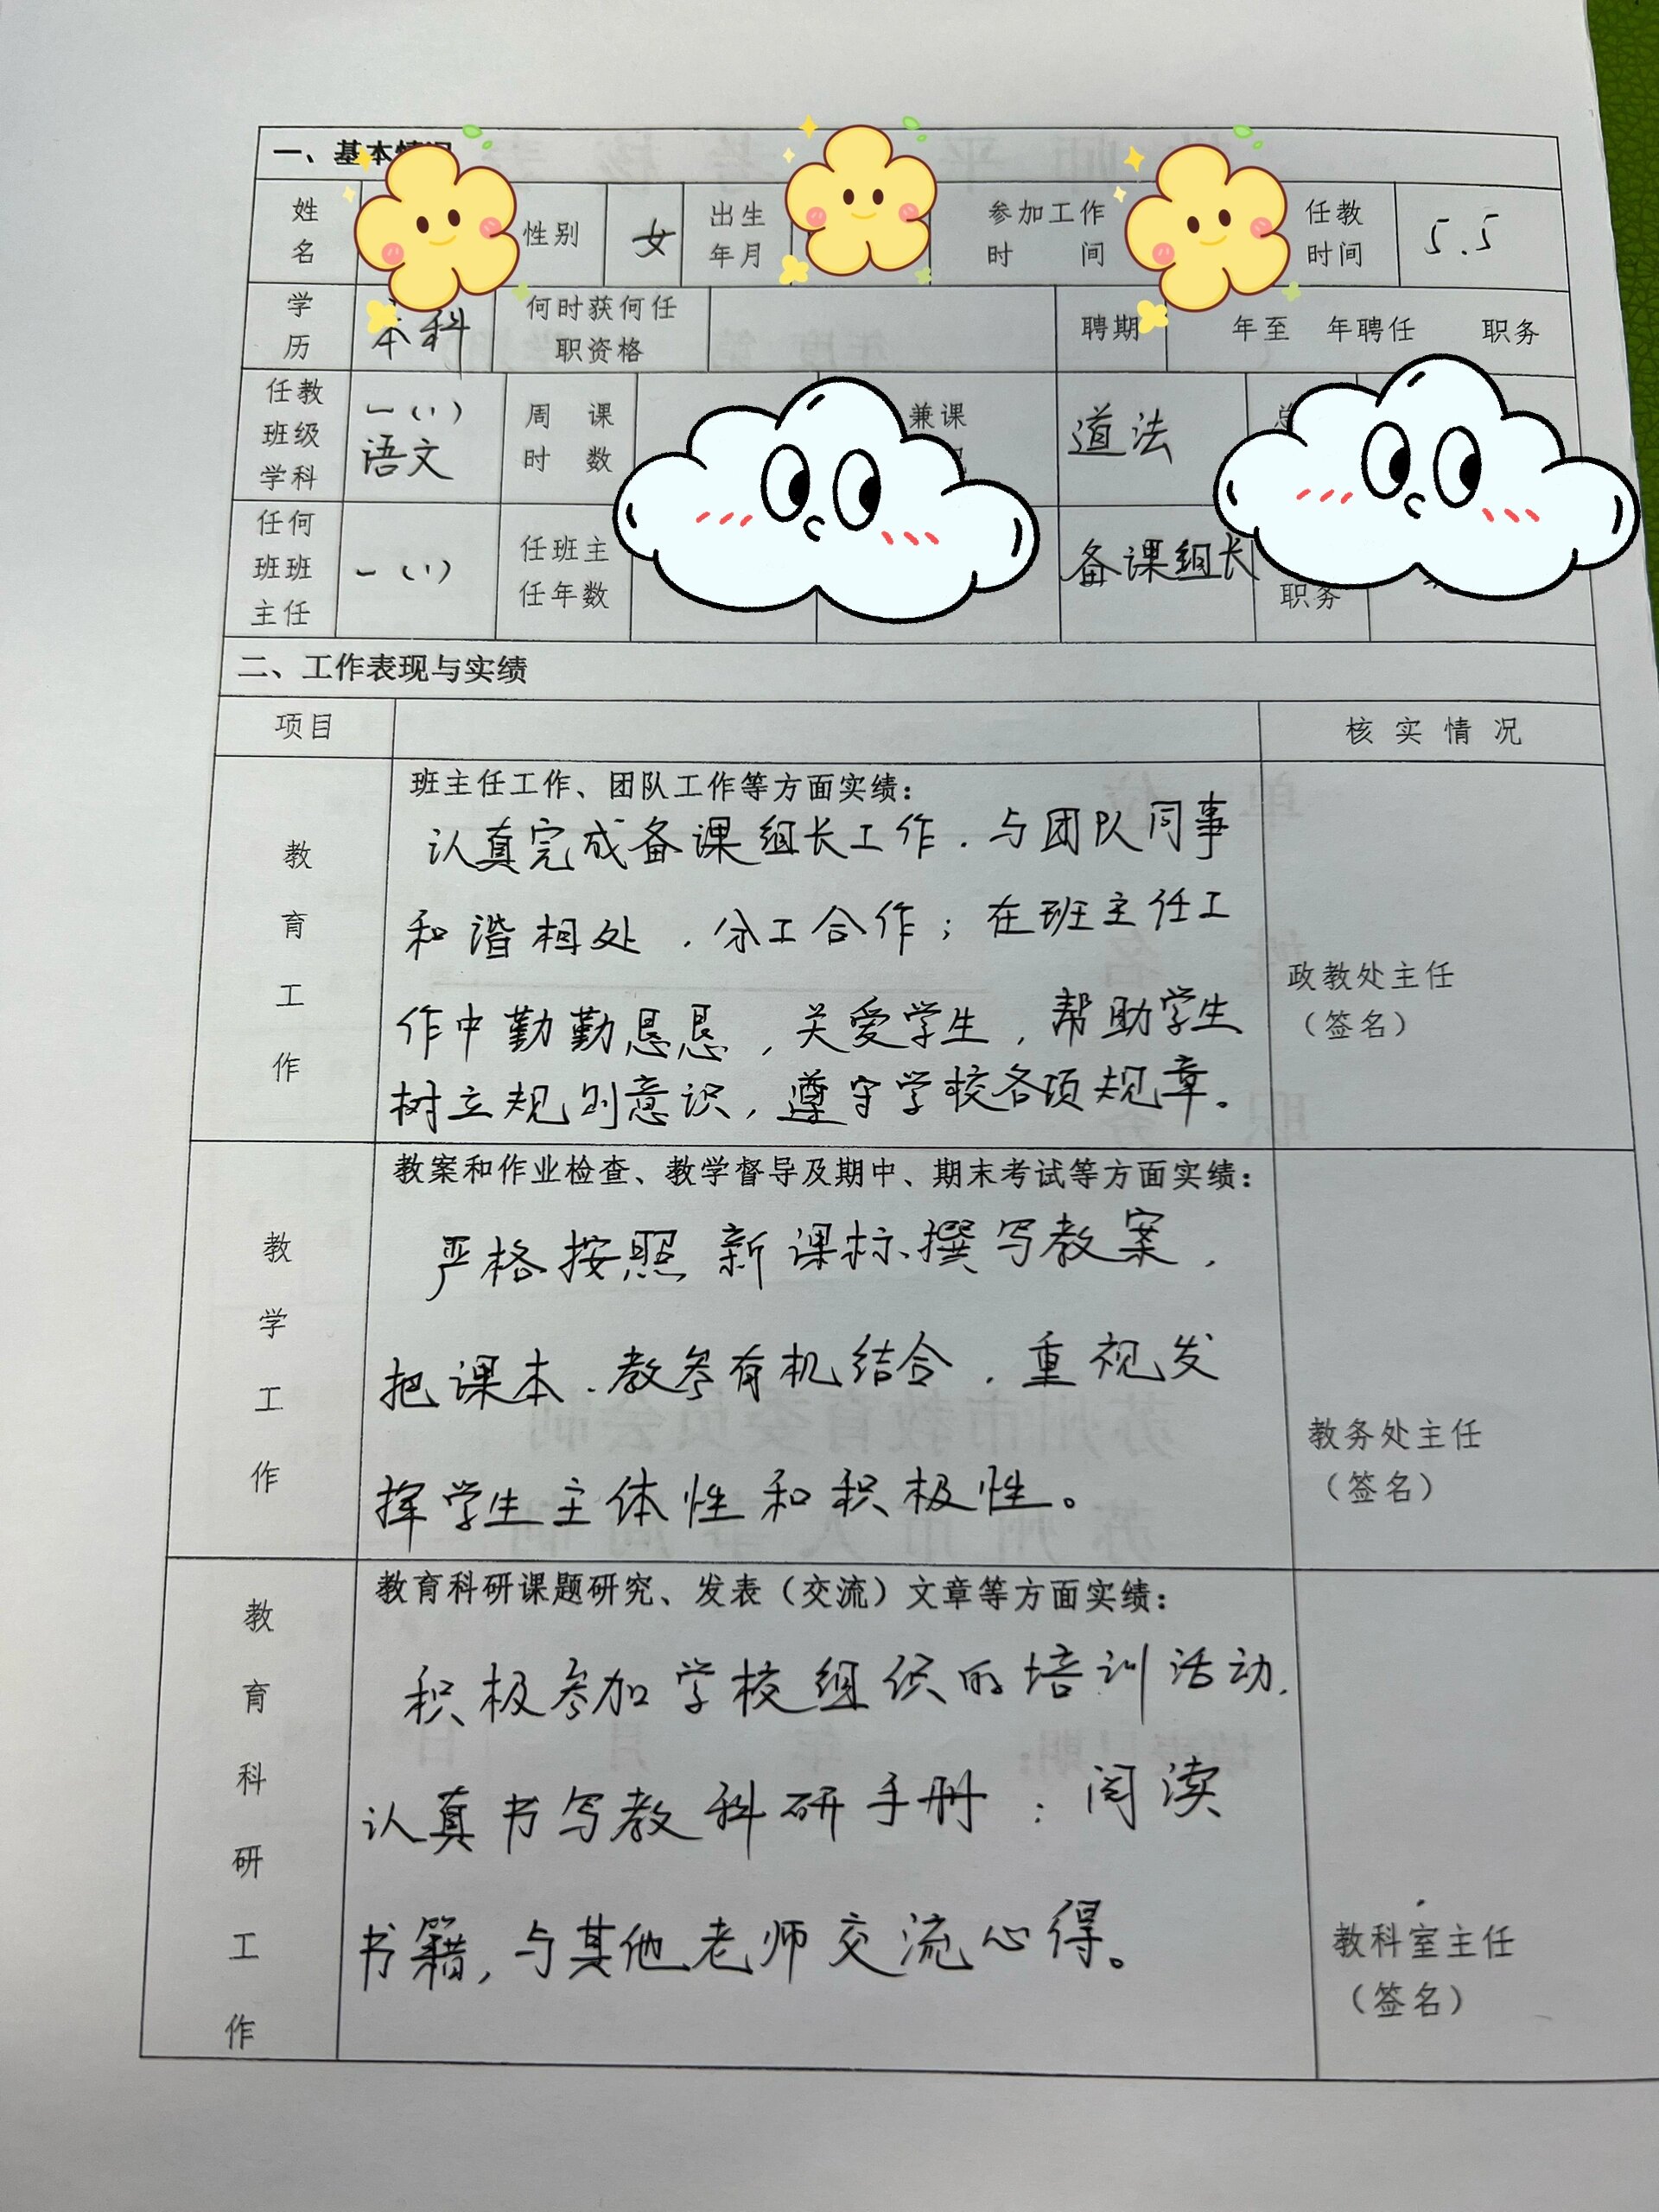 一、基本情况
姓名 性别 女 出生年月 参加工作时间 任教时间 5.5
学历 本科 何时获何任职资格 聘期 年至 年聘任 职务
任教班级学科 一(1)语文 周课时数 兼课 道法
任何班班主任 一(1) 任班主任年数 备课组长 职务
二、工作表现与实绩
项目 核实情况
教育工作
班主任工作、团队工作等方面实绩：
认真完成备课组长工作，与团队同事
和谐相处，分工合作；在班主任工
作中勤勤恳恳，关爱学生，帮助学生
树立规则意识，遵守学校各项规章。
政教处主任
（签名）
教学工作
教案和作业检查、教学督导及期中、期末考试等方面实绩：
严格按照新课标、撰写教案，
把课本、教参有机结合，重视发
挥学生主体性和积极性。
教务处主任
（签名）
教育科研工作
教育科研课题研究、发表（交流）文章等方面实绩：
积极参加学校组织的培训活动，
认真书写教科研手册；阅读
书籍，与其他老师交流心得。
教科室主任
（签名）